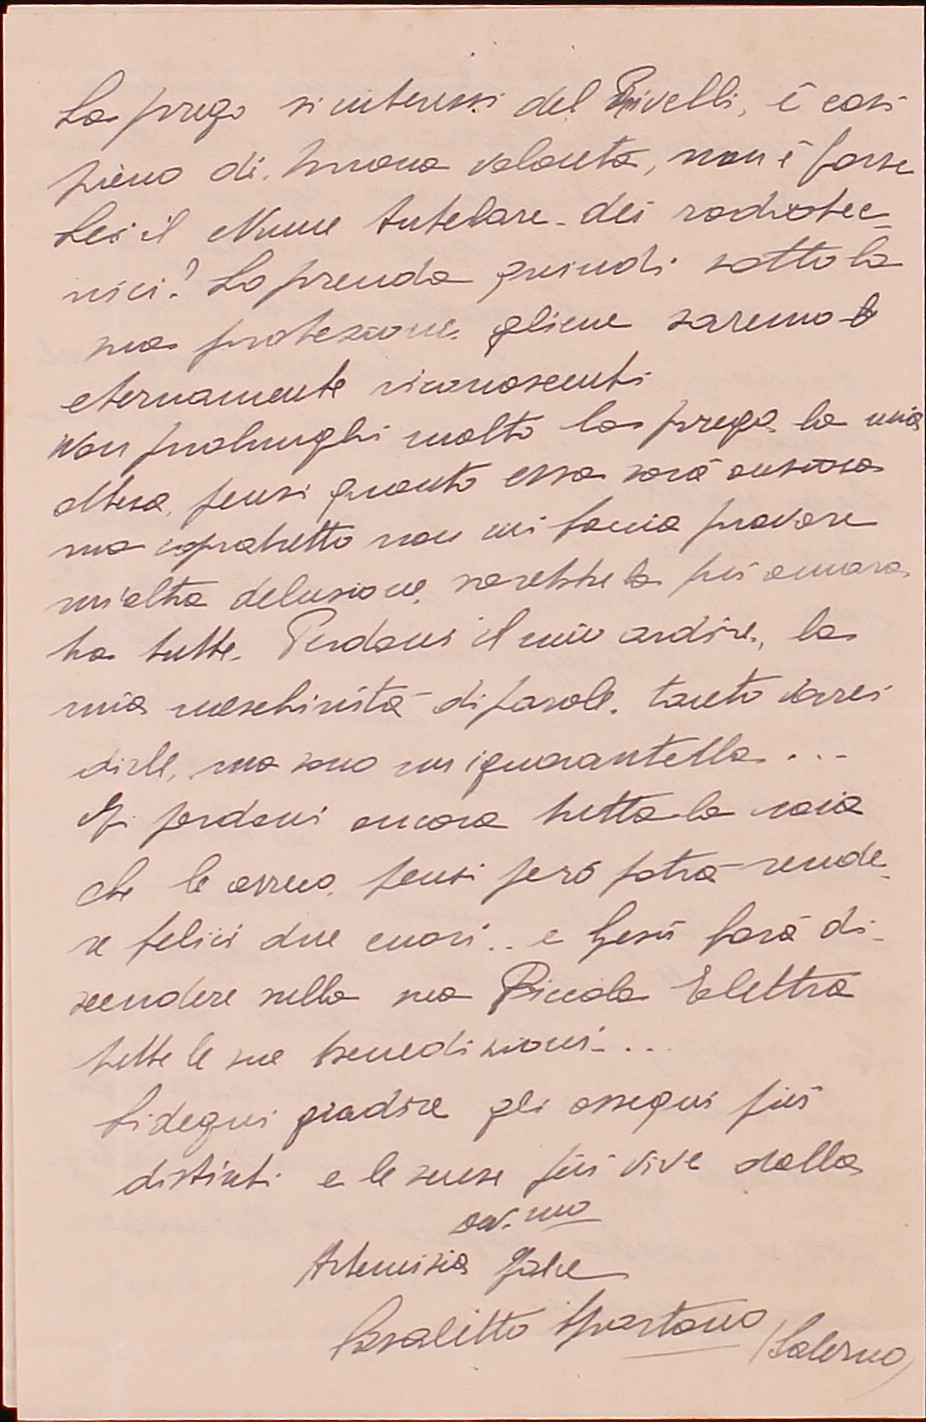 La prego si interessi del Privelli, è così
pieno di buona volontà, non è forse
Lei il Nume tutelare dei radiotec-
nici? Lo prenda quindi sotto la
sua protezione gliene saremo
eternamente riconoscenti
Non prolunghi molto la prego la mia
attesa, pensi quanto essa sarà ansiosa
ma sopratutto non mi faccia provare
un'altra delusione, sarebbe la più amara
tra tutte. Perdoni il mio ardire, la
mia meschinità di parole. tanto vorrei
dirle, ma sono un ignorantella...
Mi perdoni ancora tutta la noia
che le arreco, pensi però potrà rende-
re felici due cuori.. e Gesù farà di-
scendere sulla sua Piccola Elettra
tutte le sue benedizioni...
Si degni gradire gli ossequi più
distinti e le scuse più vive dalla
dev.ma
Artemisia
Casaletto Spartano (Salerno)